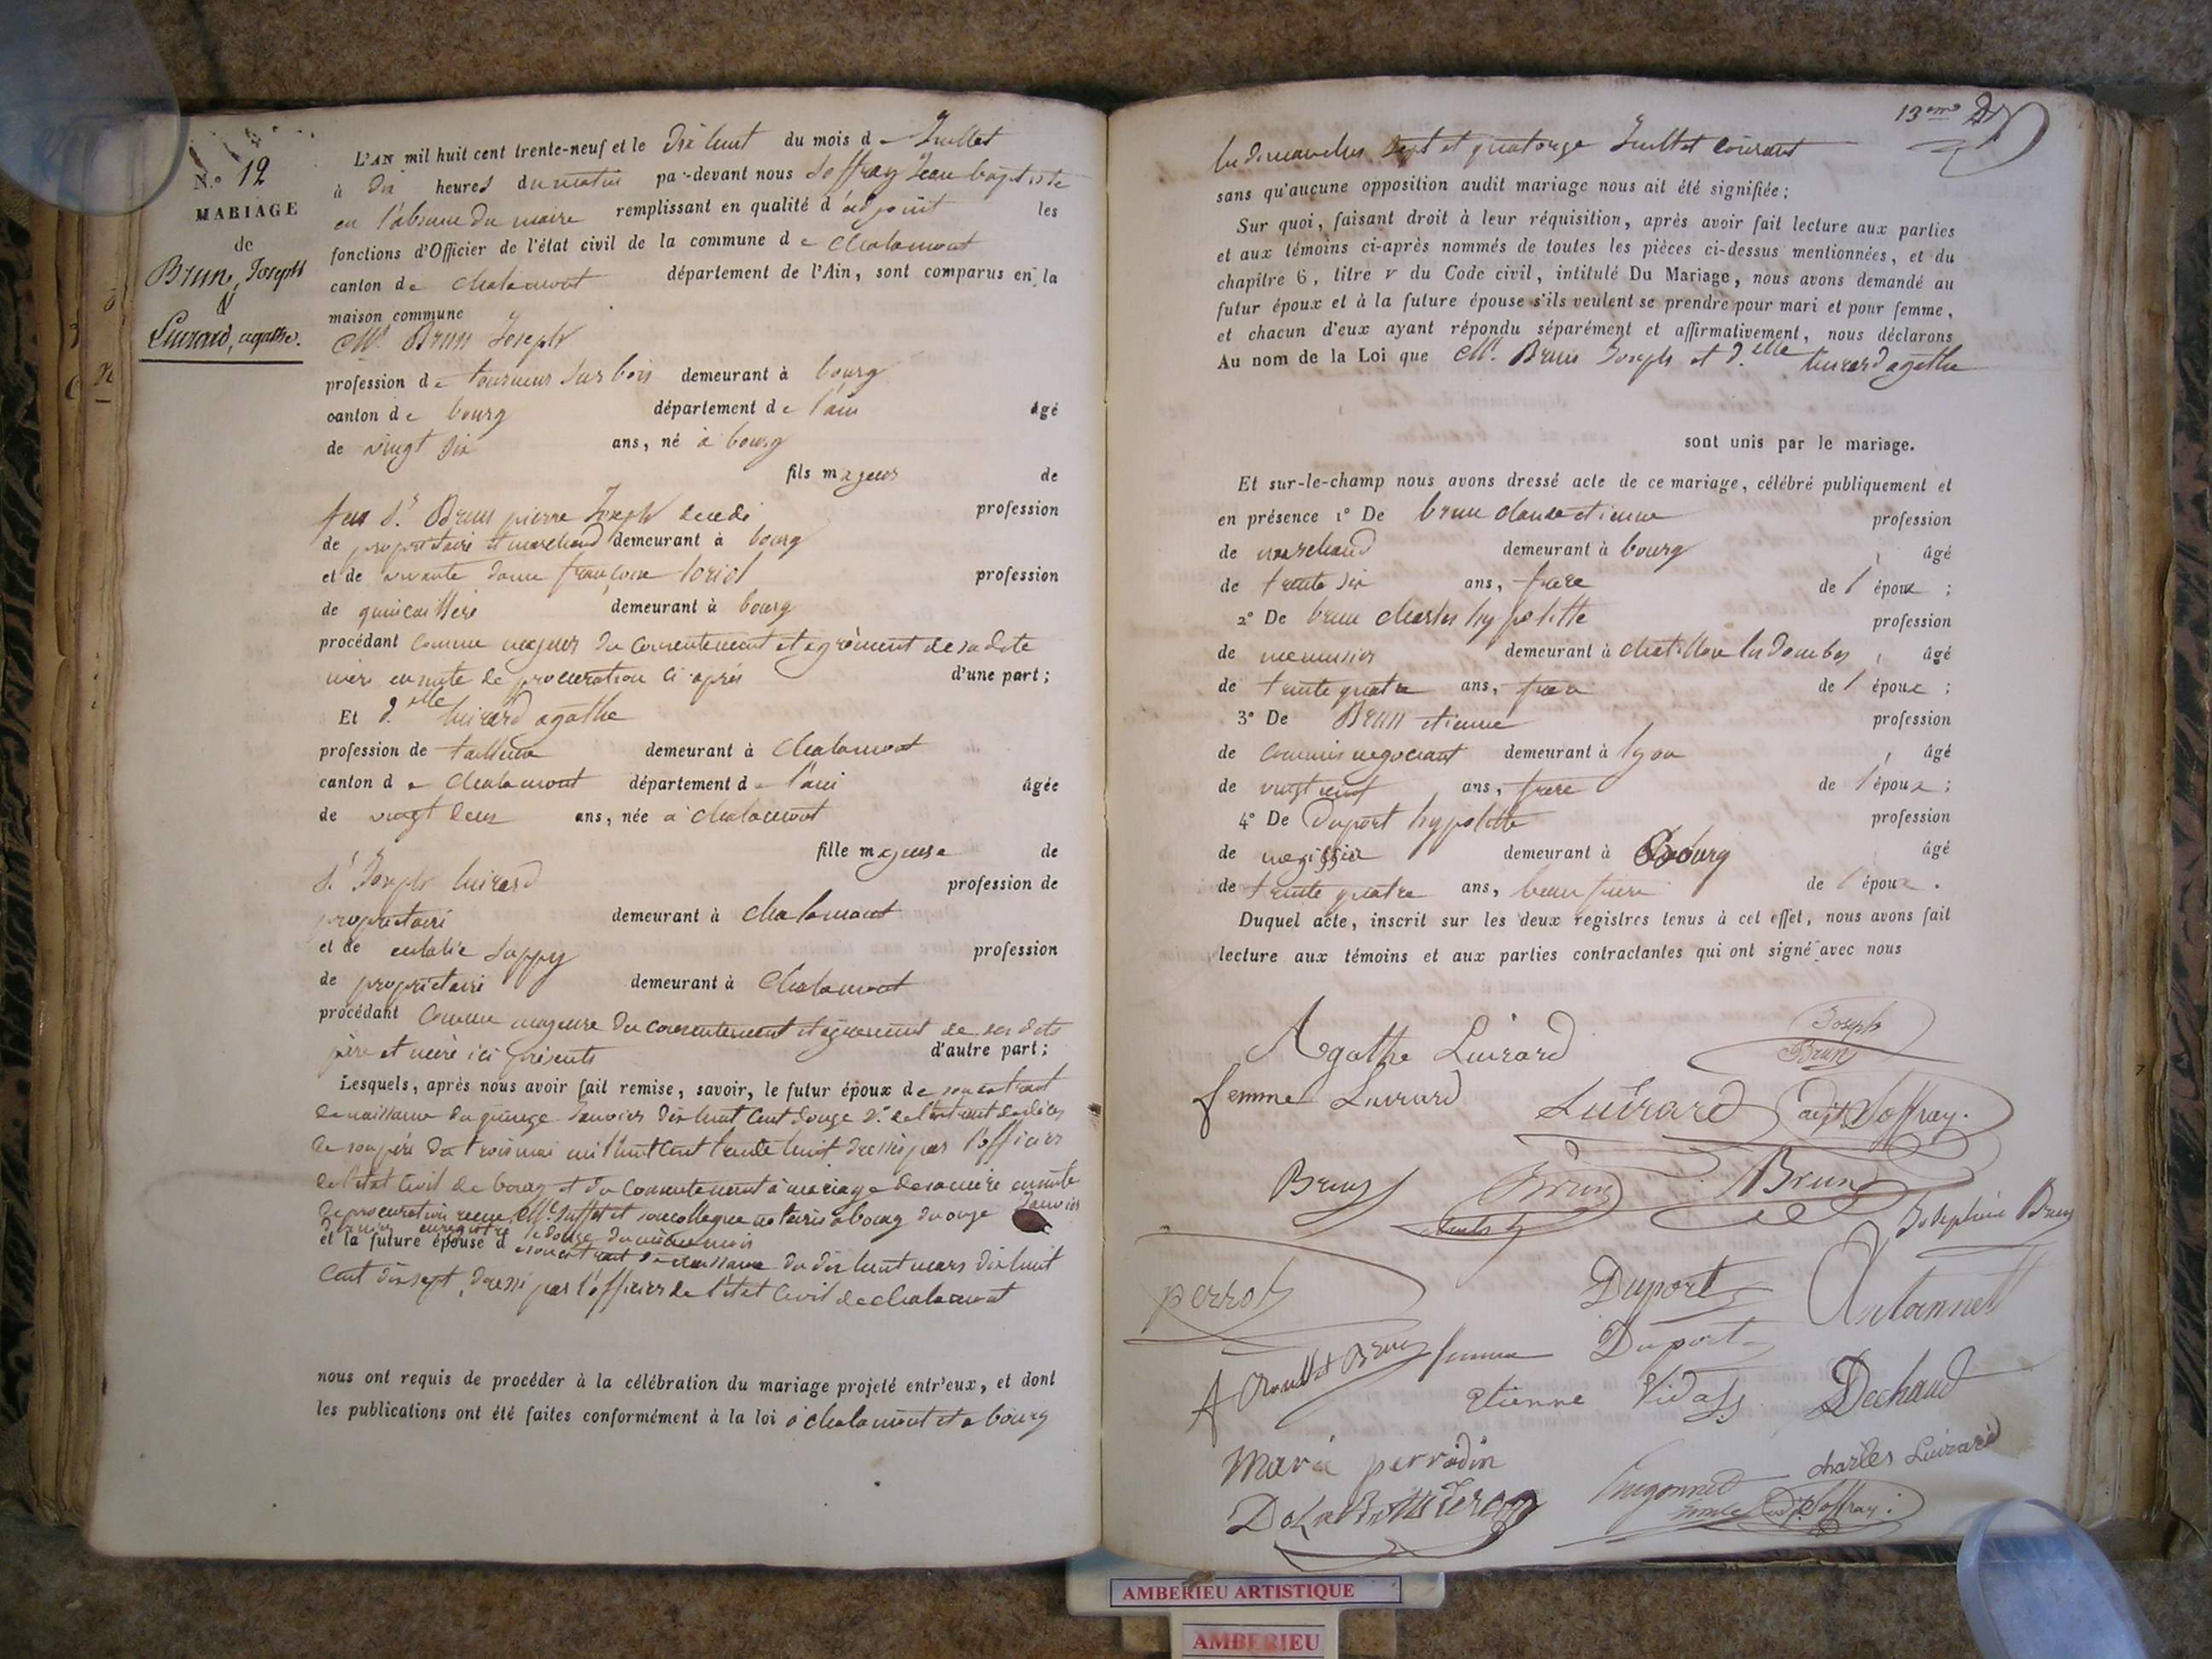 N.o 12
MARIAGE
de
Brun, Joseph
&
Luirard, agathe.
L'AN mil huit cent trente-neuf et le dix huit du mois de Juillet
à dix heures du matin par-devant nous Joffray Jean baptiste
en l'absence du maire remplissant en qualité d'adjoint les
fonctions d'Officier de l'état civil de la commune de chalamont
canton de chalamont département de l'Ain, sont comparus en la
maison commune
Mr. Brun Joseph
profession de tourneur sur bois demeurant à bourg
canton de bourg département de l'ain âgé
de vingt six ans, né à bourg
fils majeur de
feu Sr. Brun pierre Joseph décédé profession
de propriétaire et marchand demeurant à bourg
et de vivante dame françoise loriol profession
de quincaillère demeurant à bourg
procédant comme majeur du consentement et agrément de sa dite
mère ensuite de procuration ci après d'une part;
Et d.elle luirard agathe
profession de tailleuse demeurant à chalamont
canton de chalamont département de l'ain âgée
de vingt deux ans, née à chalamont
fille majeure de
Sr. Joseph luirard profession de
propriétaire demeurant à chalamont
et de eulalie sappy profession
de propriétaire demeurant à chalamont
procédant comme majeure du consentement et agrément de ses dits
père et mère ici présents d'autre part;
Lesquels, après nous avoir fait remise, savoir, le futur époux de son extrait
de naissance du quinze Janvier dix huit cent douze de l'extrait de décès
de son père du trois mai mil huit cent trente huit dressé par l'officier
de l'état civil de bourg et du consentement à mariage de sa mère ensuite
de procuration reçue Me. et son collegue notaires a bourg du onze Janvier
dernier enregistré le douze du même mois
et la future épouse de son extrait de naissance du dix huit mars dix huit
cent dix sept, dressé par l'officier de l'état civil de chalamont
nous ont requis de procéder à la célébration du mariage projeté entr'eux, et dont
les publications ont été faites conformément à la loi à chalamont et a bourg
13eme
les dimanches sept et quatorze Juillet courant
sans qu'aucune opposition audit mariage nous ait été signifiée;
Sur quoi, faisant droit à leur réquisition, après avoir fait lecture aux parties
et aux témoins ci-après nommés de toutes les pièces ci-dessus mentionnées, et du
chapitre 6, titre v du Code civil, intitulé Du Mariage, nous avons demandé au
futur époux et à la future épouse s'ils veulent se prendre pour mari et pour femme,
et chacun d'eux ayant répondu séparément et affirmativement, nous déclarons
Au nom de la Loi que Mr. Brun Joseph et d.elle luirard agathe
sont unis par le mariage.
Et sur-le-champ nous avons dressé acte de ce mariage, célébré publiquement et
en présence 1º De brun claude etienne profession
de marchand demeurant à bourg, âgé
de trente six ans, frere de l'époux;
2º De brun charles hypolitte profession
de menuisier demeurant à chatillon les dombes, âgé
de trente quatre ans, frere de l'époux;
3º De Brun etienne profession
de commis negociant demeurant à lyon, âgé
de vingt neuf ans, frere de l'époux;
4º De Duport hypolitte profession
de megissier demeurant à Bourg âgé
de trente quatre ans, beau frere de l'époux.
Duquel acte, inscrit sur les deux registres tenus à cet effet, nous avons fait
lecture aux témoins et aux parties contractantes qui ont signé avec nous
Agathe Luirard Joseph Brun
femme Luirard Luirard adjt Joffray.
Brun Brun Brun
Josephine Brun
perrot Duport
Brun femme Duport
Etienne Vidal Dechaud
Marie perrodin charles Luirard
hugonnet
adjt Joffray
AMBERIEU ARTISTIQUE
AMBERIEU